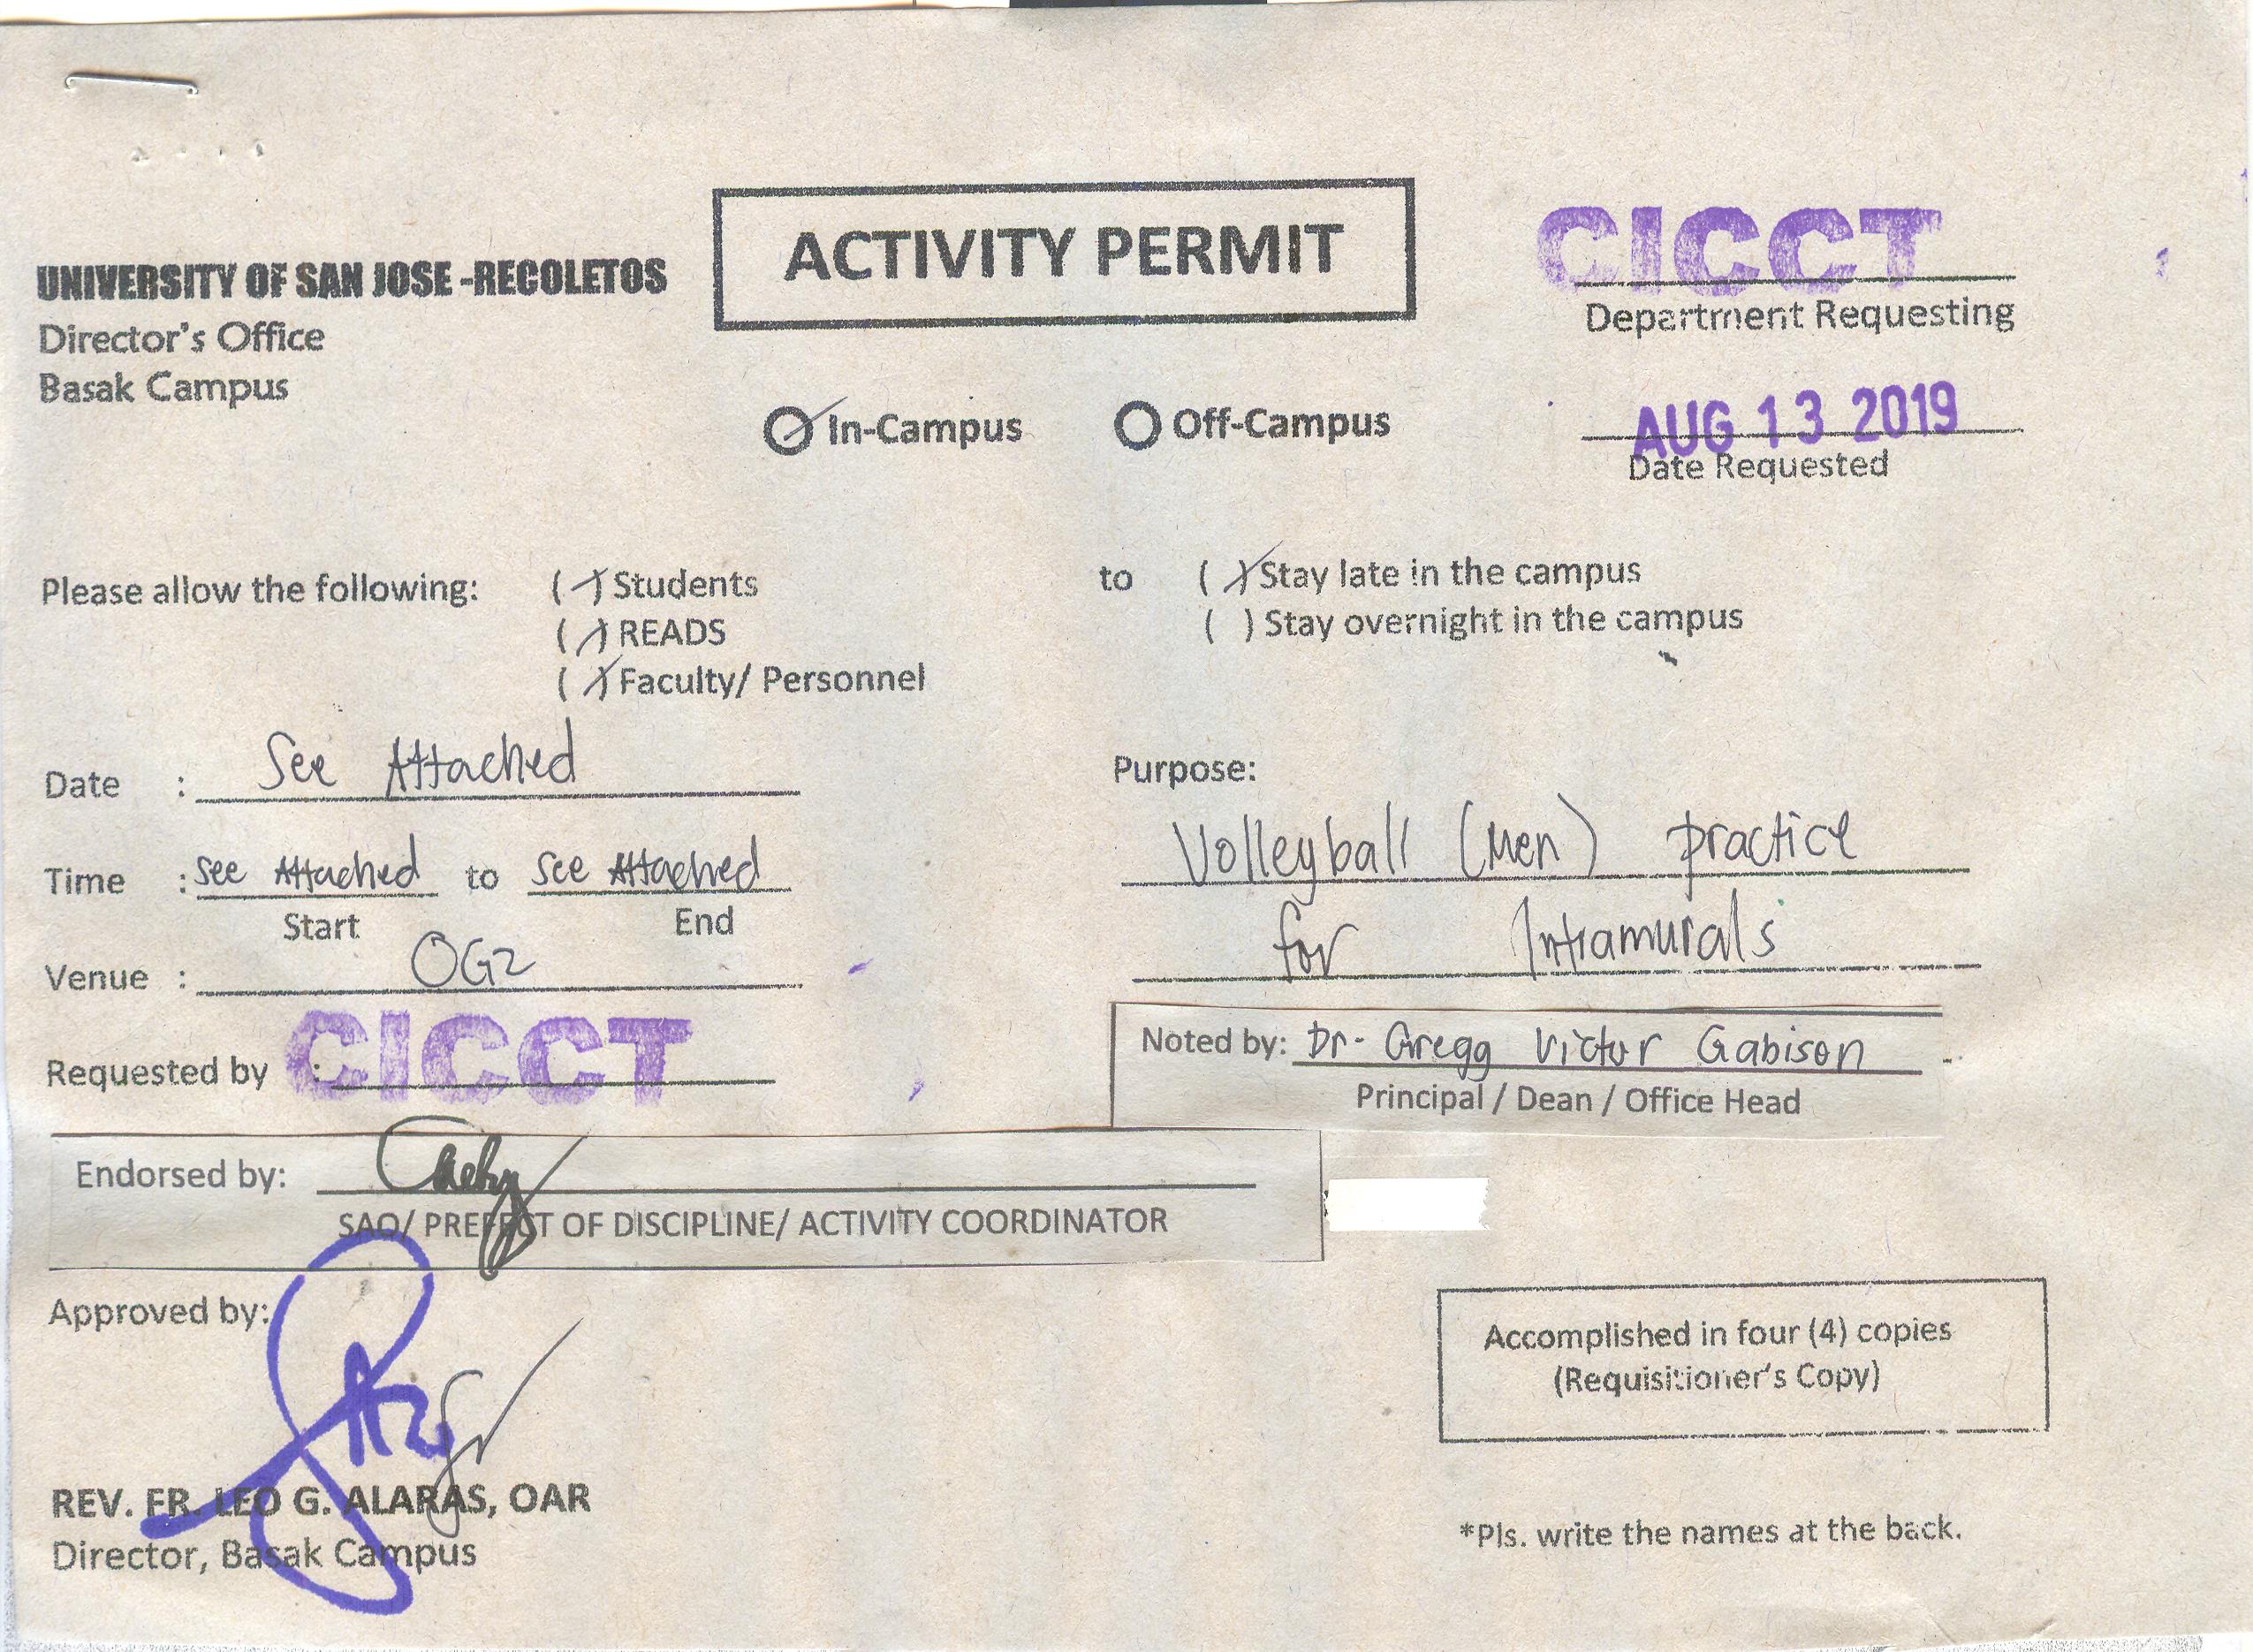 ACTIVITY PERMIT
CICCT
Department Requesting
UNIVERSITY OF SAN JOSE -RECOLETOS
Director's Office
Basak Campus
In-Campus Off-Campus
AUG 13 2019
Date Requested
Please allow the following: ( ) Students
( ) READS
( ) Faculty/ Personnel
to ( ) Stay late in the campus
( ) Stay overnight in the campus
Date : See Attached
Time : See Attached to See Attached
Start End
Venue : OG2
Requested by : CICCT
Purpose:
Volleyball (Men) practice
for Intramurals
Noted by: Dr. Gregg Victor Gabison
Principal / Dean / Office Head
Endorsed by:
SAO/ PREFECT OF DISCIPLINE/ ACTIVITY COORDINATOR
Approved by:
REV. FR. LEO G. ALARAS, OAR
Director, Basak Campus
Accomplished in four (4) copies
(Requisitioner's Copy)
*Pls. write the names at the back.